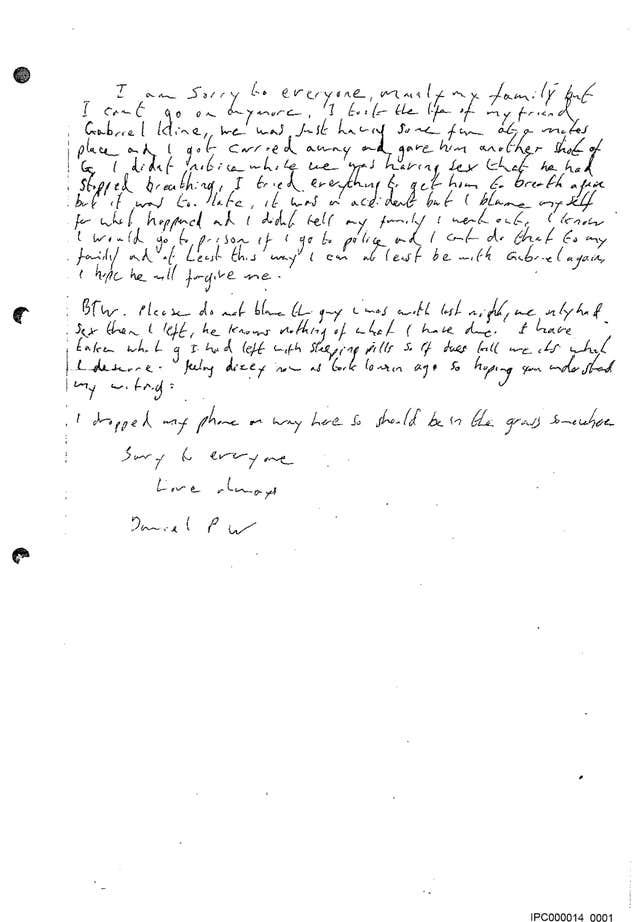 I am Sorry to everyone, mainly my family but
I cant go on anymore, I took the life of my friend
Gabriel Kline, we was just having some fun at a mates
place and I got carried away and gave him another shot of
G, I didnt notice while we was having sex that he had
Stopped breathing, I tried everything to get him to breath again
but it was to late, it was an accident but I blame myself
for what happened and I didnt tell my family I went out, I know
I would go to prison if I go to police and I cant do that to my
family and at Least this way I can at least be with Gabriel again,
I hope he will forgive me.
BTW. Please do not blame the guy I was with last night, we only had
Sex then I left, he knows nothing of what I have done. I have
taken what g I had left with sleeping pills so if it does kill me its what
I deserve. Feeling dizzy now as took 10 min ago so hoping you understand
my writing.
I dropped my phone on way here so should be in the grass somewhere
Sorry to everyone
Love always
Daniel P W
IPC000014_0001